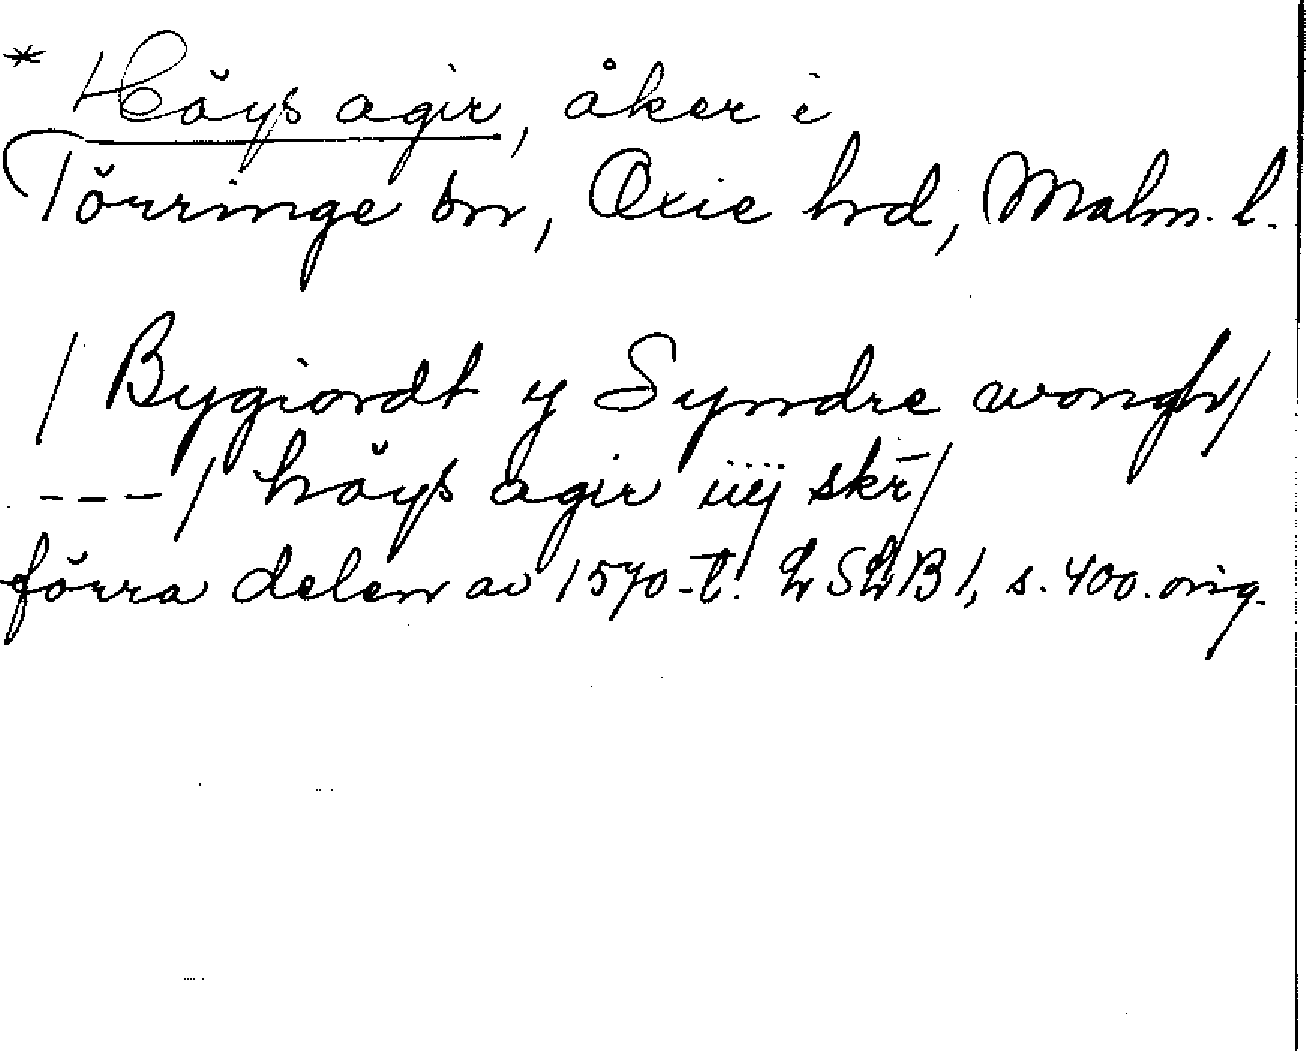 * Höys agir, åker i
Törringe sn, Oxie hrd, Malm. l.
/ Bygiordt y Syndre wongh/
--- / höys agir iiij skr̄/
förra delen av 1570-t. LSLB 1, s. 400. orig.